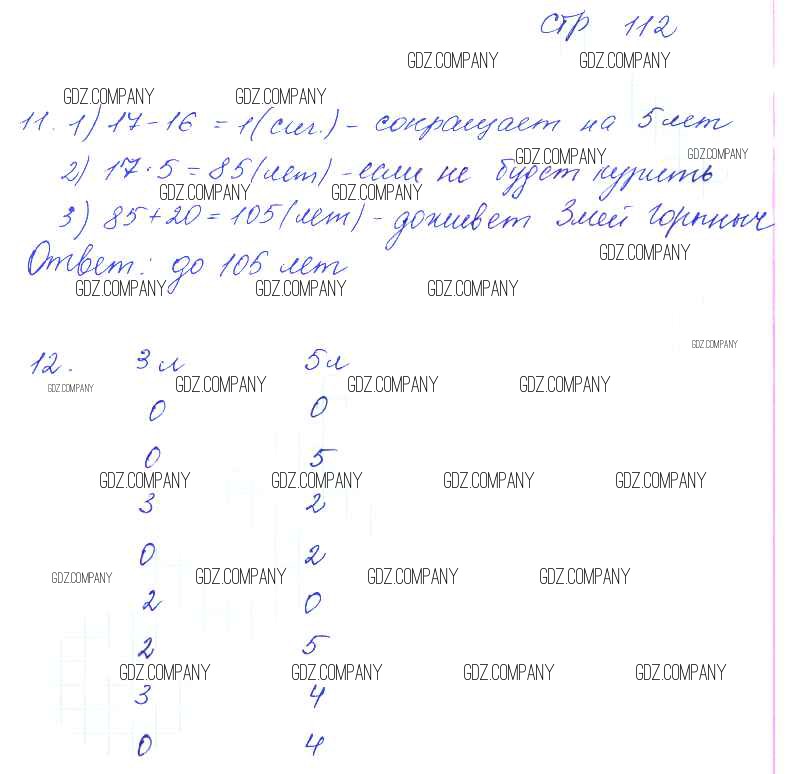 стр 112
GDZ.COMPANY GDZ.COMPANY
GDZ.COMPANY GDZ.COMPANY
11. 1) 17 - 16 = 1 (сиг.) - сокращает на 5 лет
GDZ.COMPANY GDZ.COMPANY
2) 17 · 5 = 85 (лет) - если не будет курить
GDZ.COMPANY GDZ.COMPANY
3) 85 + 20 = 105 (лет) - доживет Змей Горыныч
GDZ.COMPANY
Ответ: до 105 лет
GDZ.COMPANY GDZ.COMPANY GDZ.COMPANY
GDZ.COMPANY
12. 3 л 5 л
GDZ.COMPANY GDZ.COMPANY GDZ.COMPANY GDZ.COMPANY
0 0
0 5
GDZ.COMPANY GDZ.COMPANY GDZ.COMPANY GDZ.COMPANY
3 2
0 2
GDZ.COMPANY GDZ.COMPANY GDZ.COMPANY GDZ.COMPANY
2 0
2 5
GDZ.COMPANY GDZ.COMPANY GDZ.COMPANY GDZ.COMPANY
3 4
0 4